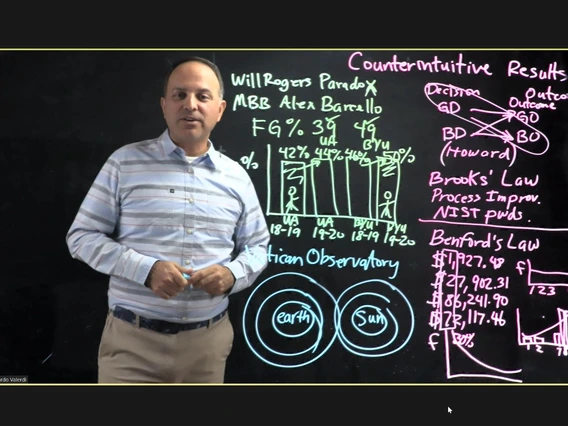 Counterintuitive Results
Will Rogers Paradox
MBB Alex Barcello
FG% 39 49
UA BYU
% 42% 44% 46% 50%
UA UA BYU BYU
18-19 19-20 18-19 19-20
tican Observatory
earth Sun
Decision Outco
Outcome
GD GO
BD BO
(Howard)
Brooks' Law
Process Improv.
NIST pwds.
Benford's Law
$1,927.48
$27,902.31
$86,241.90
$72,117.46
f
1 2 3
f 30%
1 2 78
rdo Valerdi